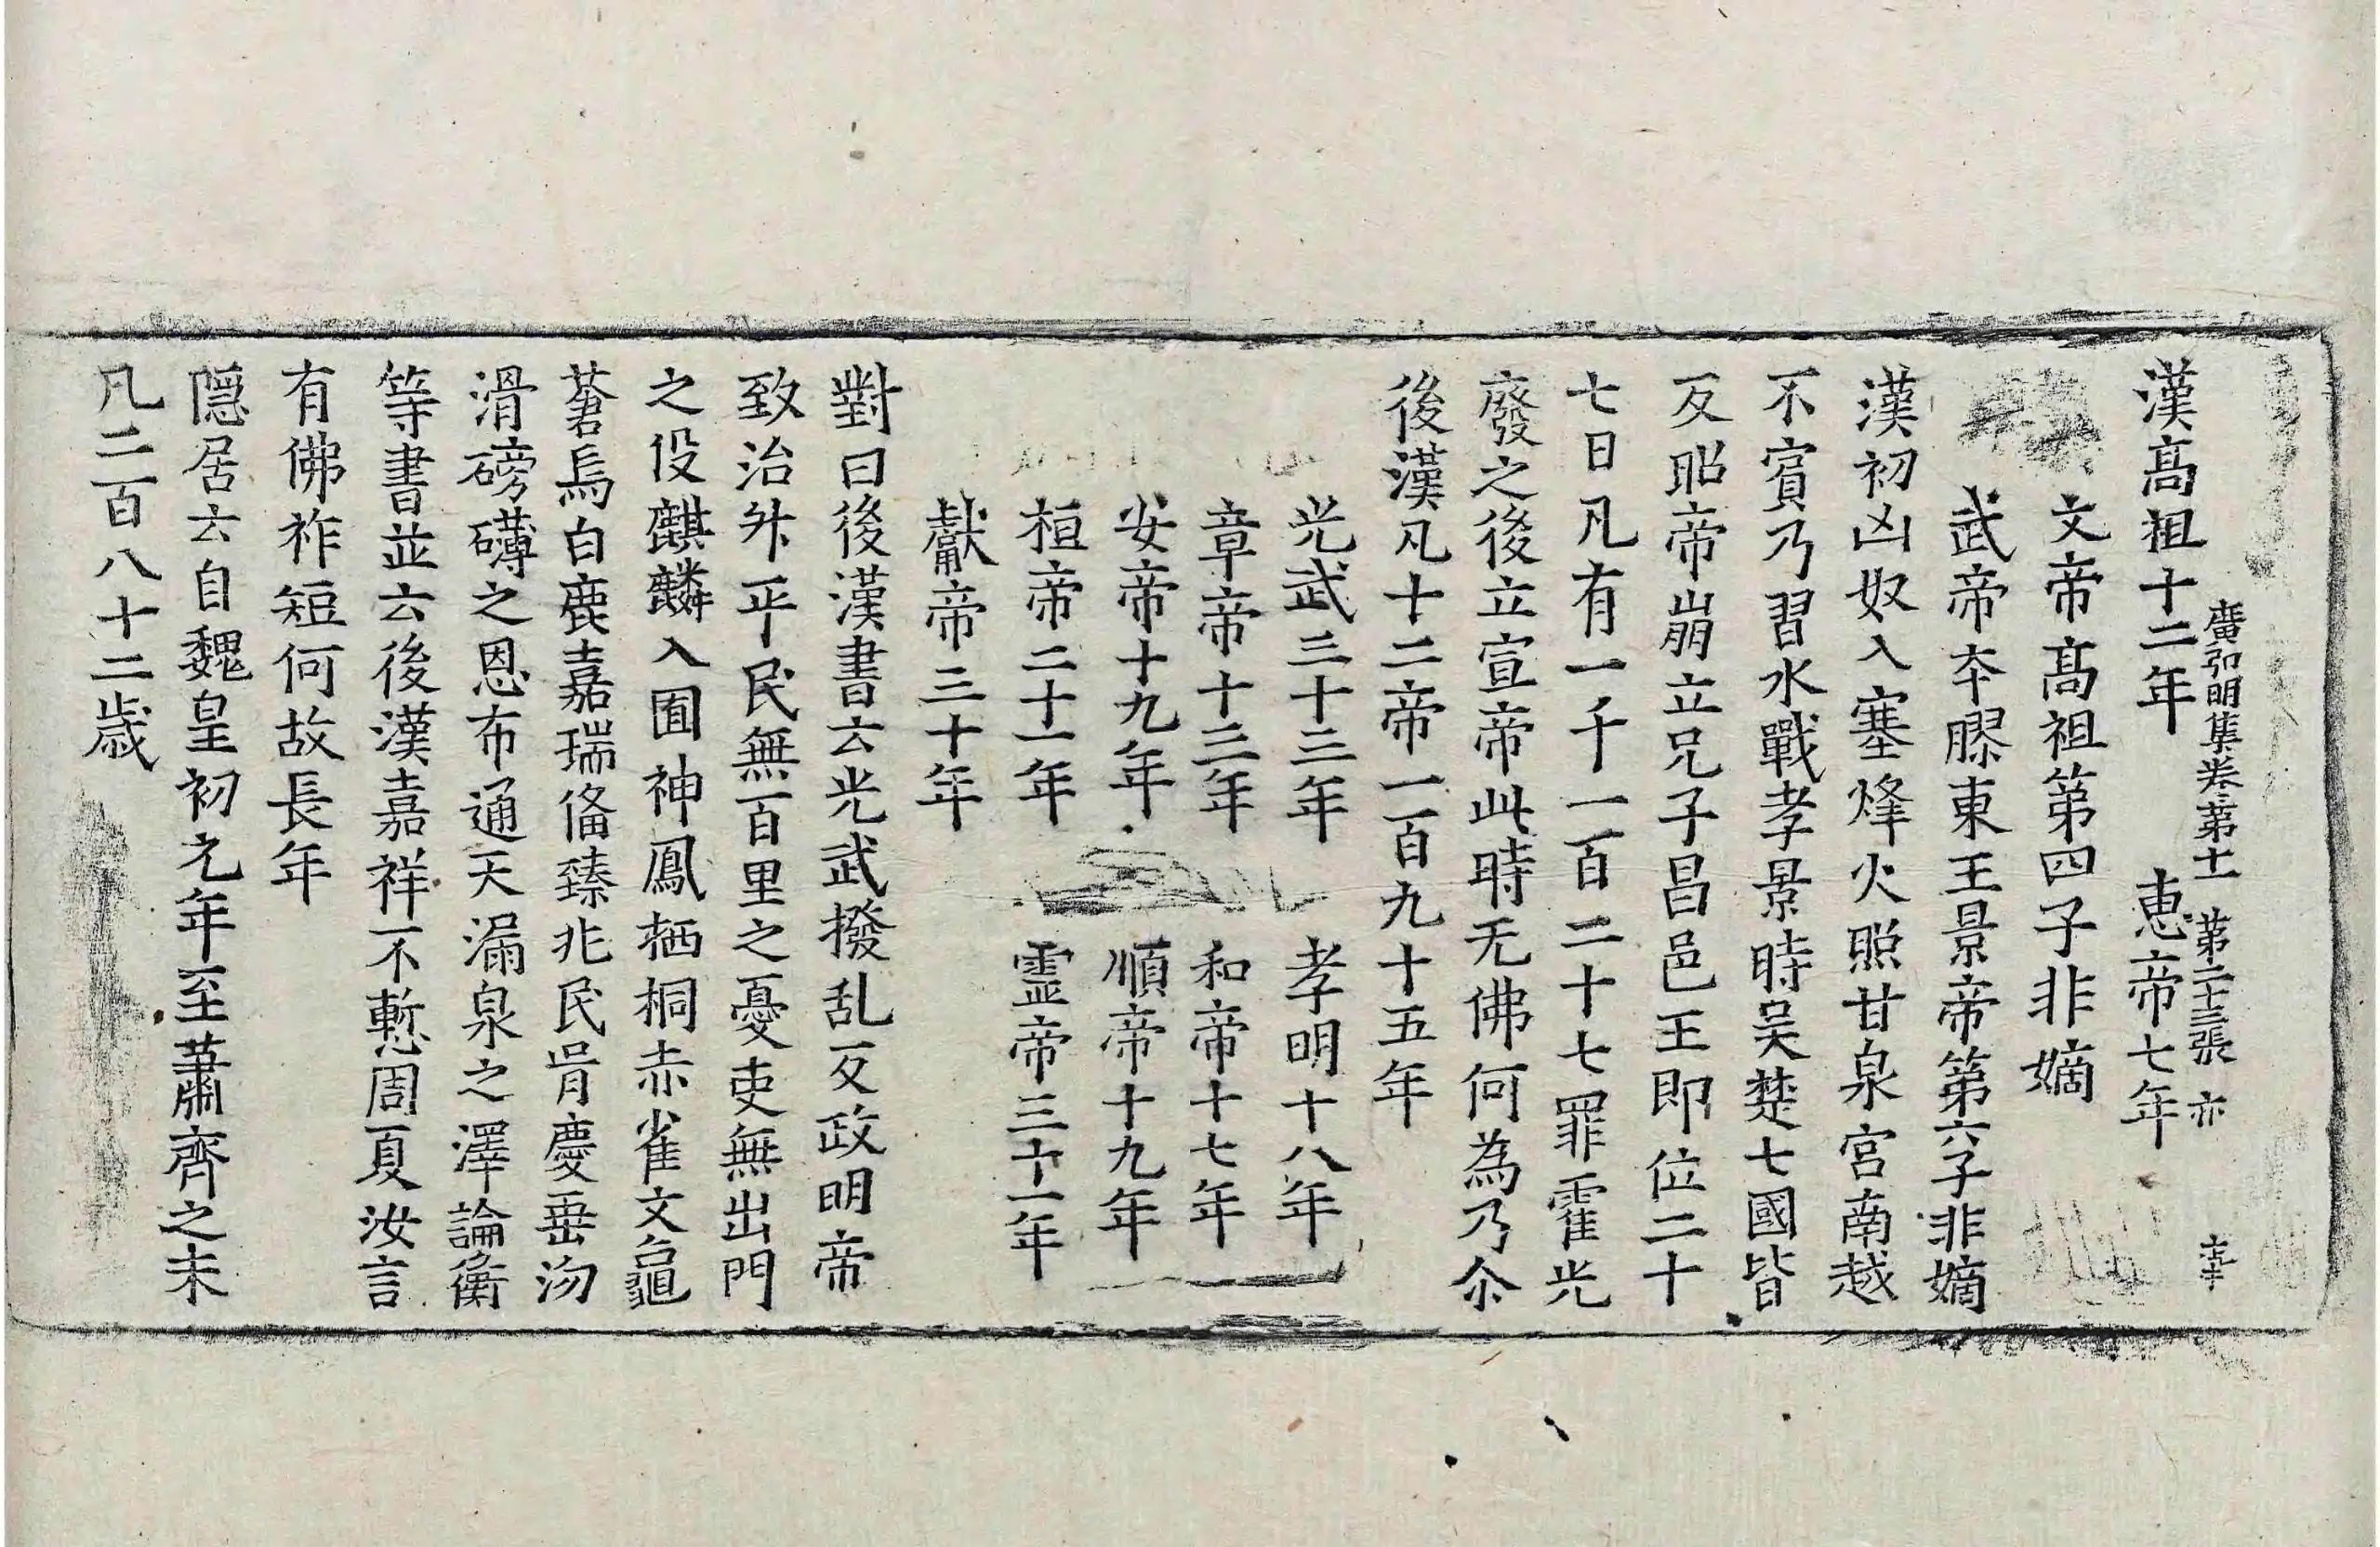 漢髙祖十二年　惠帝七年
廣弘明集卷第十一　第二十三張　亦
文帝髙祖第四子非嫡
武帝本膠東王景帝第六子非嫡
漢初凶奴入塞烽火照甘泉宮南越
不賓乃習水戰孝景時吴楚七國皆
反昭帝崩立兄子昌邑王即位二十
七日凡有一千一百二十七罪霍光
廢之後立宣帝此時无佛何為乃尒
後漢凡十二帝一百九十五年
光武三十三年　孝明十八年
章帝十三年　和帝十七年
安帝十九年　順帝十九年
桓帝二十一年　霊帝三十一年
獻帝三十年
對曰後漢書云光武撥乱反政明帝
致治升平民無百里之憂吏無出門
之役麒麟入囿神鳳栖桐赤雀文龜
蒼烏白鹿嘉瑞俻臻兆民胥慶垂沕
滑磅礴之恩布通天漏泉之澤論衡
等書並云後漢嘉祥不慙周夏汝言
有佛祚短何故長年
隠居云自魏皇初元年至蕭齊之末
凡二百八十二歳